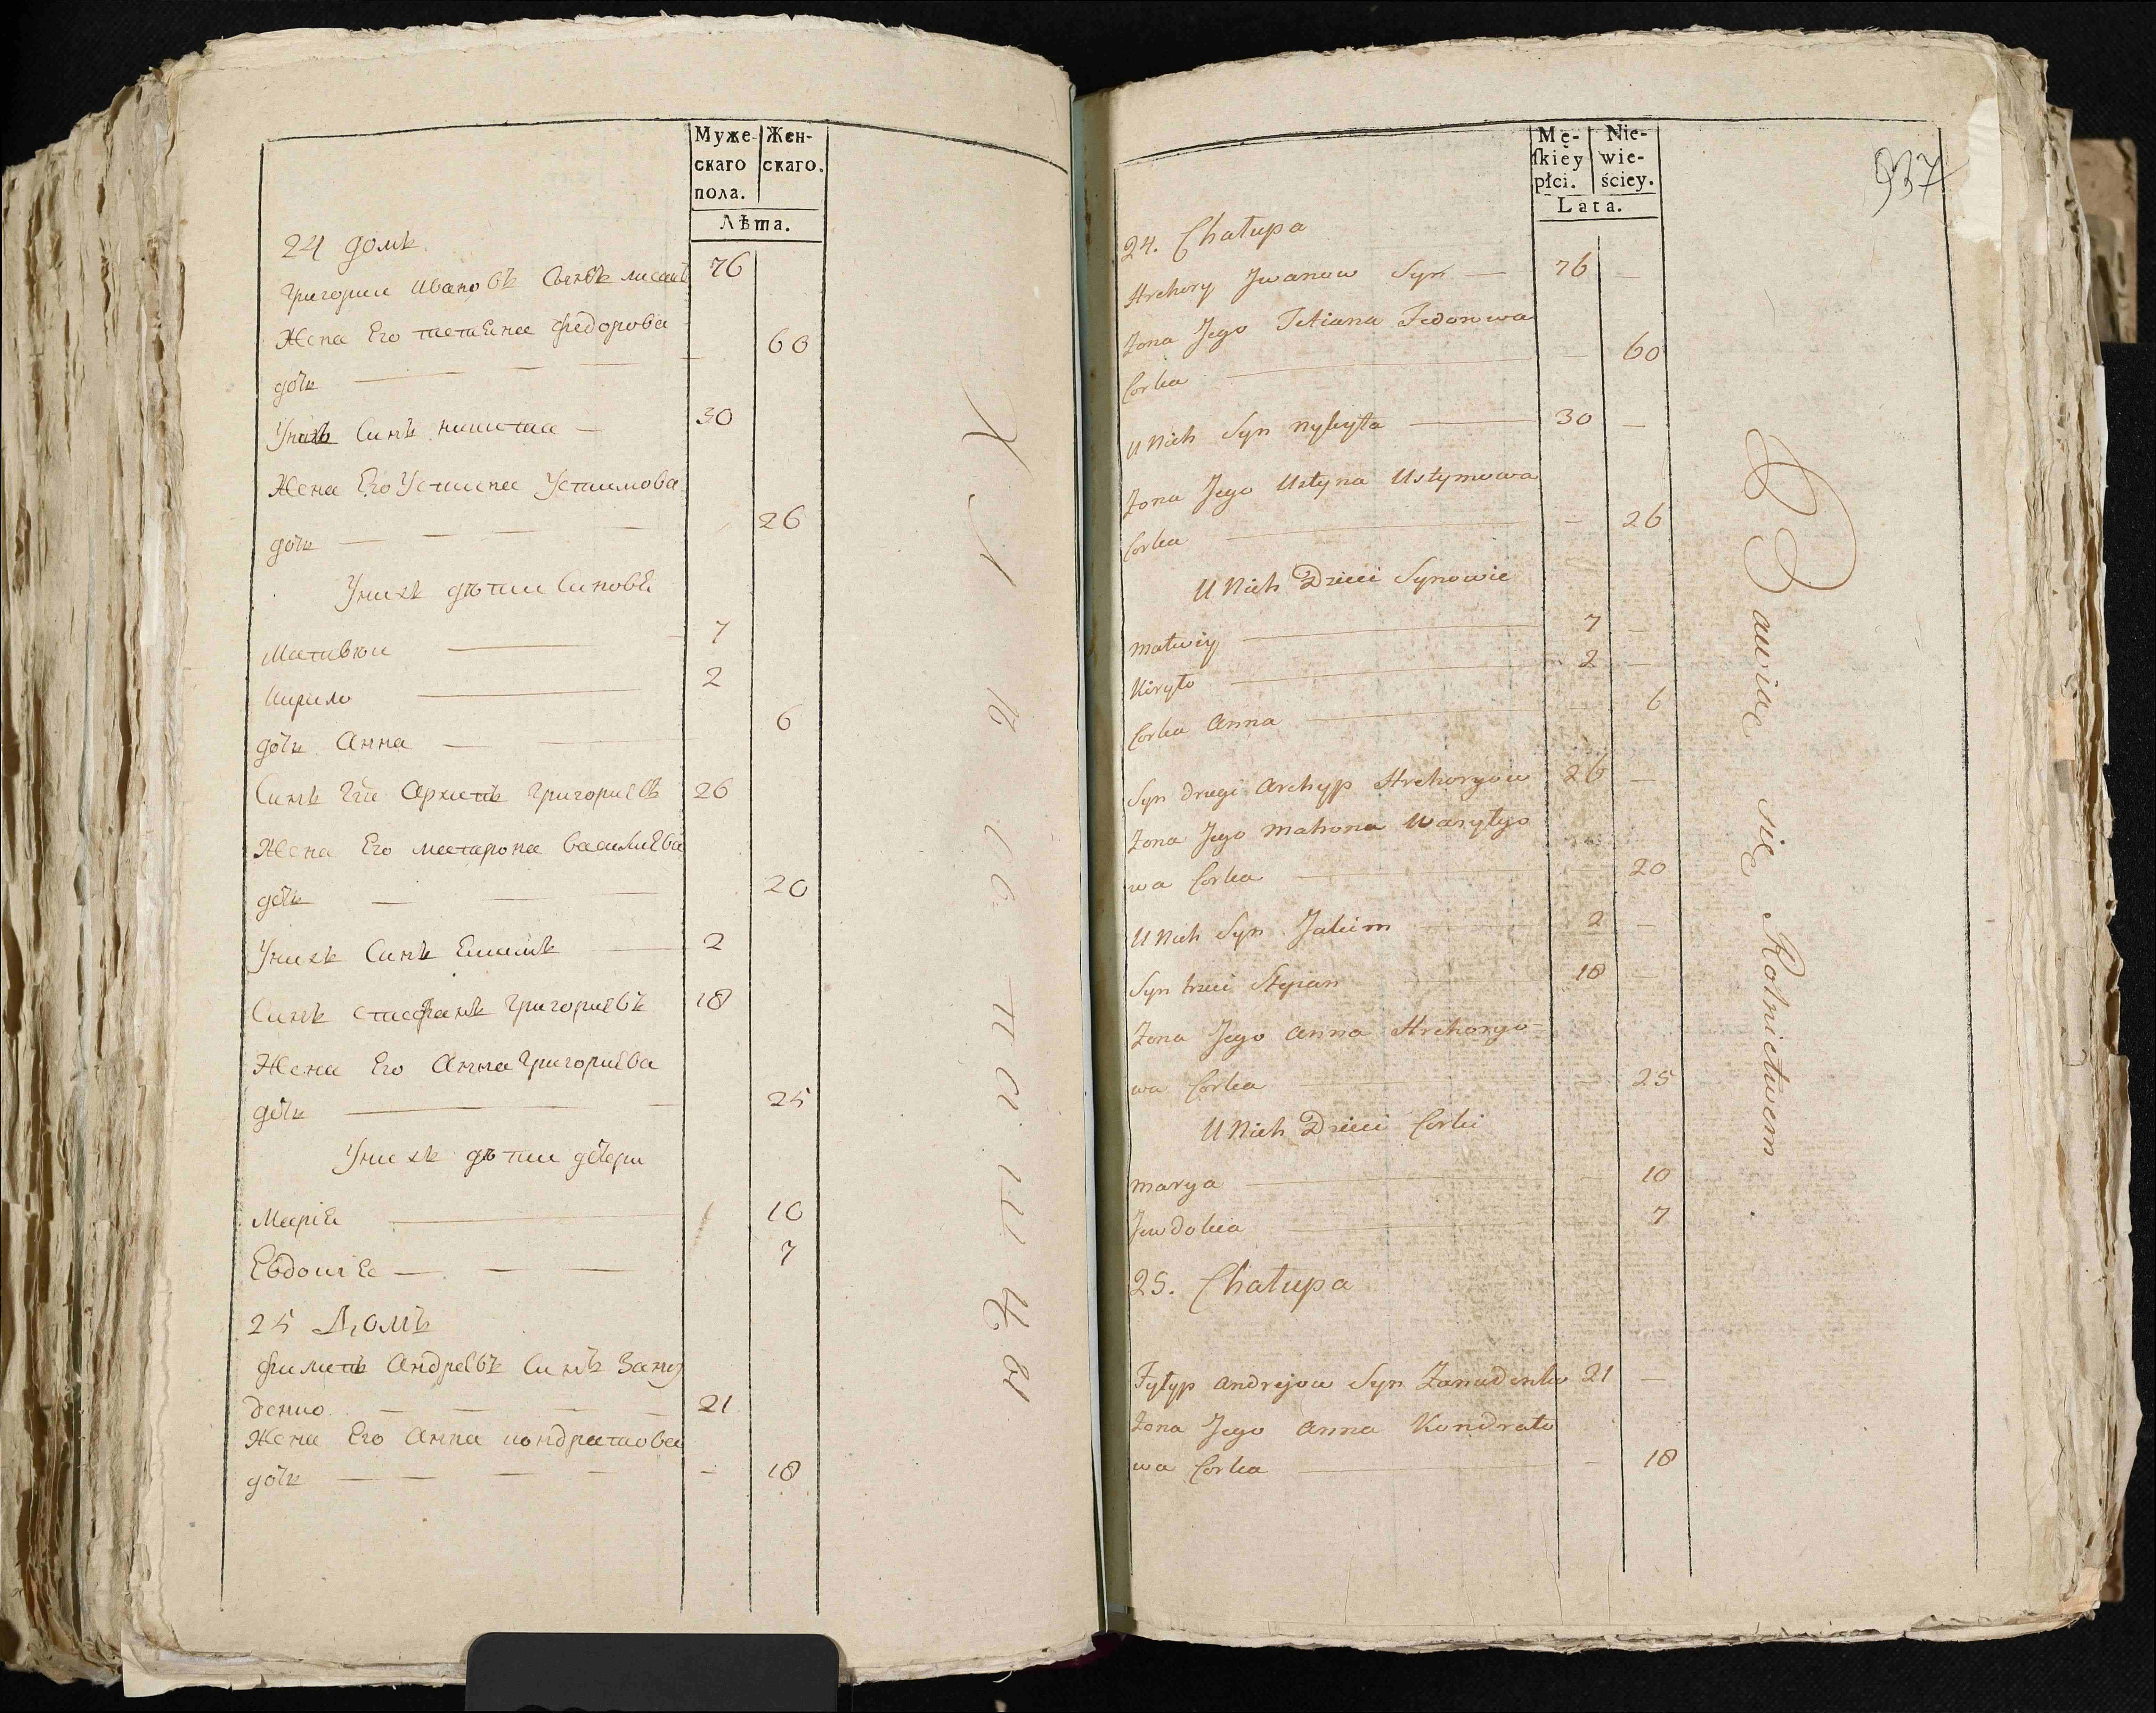 Муже-
скаго
пола.
Жен-
скаго.
Лѣта.
24 домъ
Григории Ивановъ Сынъ
76
Жена Его татиѣна федорова
дочь — — — 60
Унихъ Синъ никита — 30
Жена Его Устина Устимова
дочь — — — 26
Унихъ дѣти Синовѣ
Матвюи — 7
Кирило — 2
дочь Анна — 6
Синъ Архипъ Григориевъ 26
Жена Его матрона василиева
дочь — — 20
Унихъ Синъ Екимъ — 2
Синъ стефанъ Григориевъ 18
Жена Его Анна Григориева
дочь — 25
Унихъ дѣти дочери
Маріѣ — 10
Евдокіе — — — 7
25 Домъ
филипъ Андреевъ Синъ Зану
денко — — — 21
Жена Его Анна кондратова
дочь — — — 18
Хлѣбопашцы
937
Mę-
ſkiey
płci.
Nie-
wie-
ściey.
Lata.
24. Chałupa
Hrehory Jwanow Syn — 76 —
Zona Jego Tetiana Fedorowa
Corka — — 60
U Nich Syn Nykyta — 30 —
Zona Jego Ustyna Ustymowa
Corka — — 26
U Nich Dzieci Synowie
Matwiy — 7 —
Kiryło — 2 —
Corka Anna — 6
Syn drugi Archyp Hrehoryow 26 —
Zona Jego Matrona Wasylyo
wa Corka — 20
U Nich Syn Jakim — 2 —
Syn trzeci Stepan 18 —
Zona Jego Anna Hrehoryo-
wa Corka — 25
U Nich Dzieci Corki
Marya — — 10
Jewdokia — 7
25. Chałupa
Fyłyp Andrejow Syn Zanudenko 21 —
Zona Jego Anna Kondrato
wa Corka — — 18
Bawiąc się Rolnictwem.